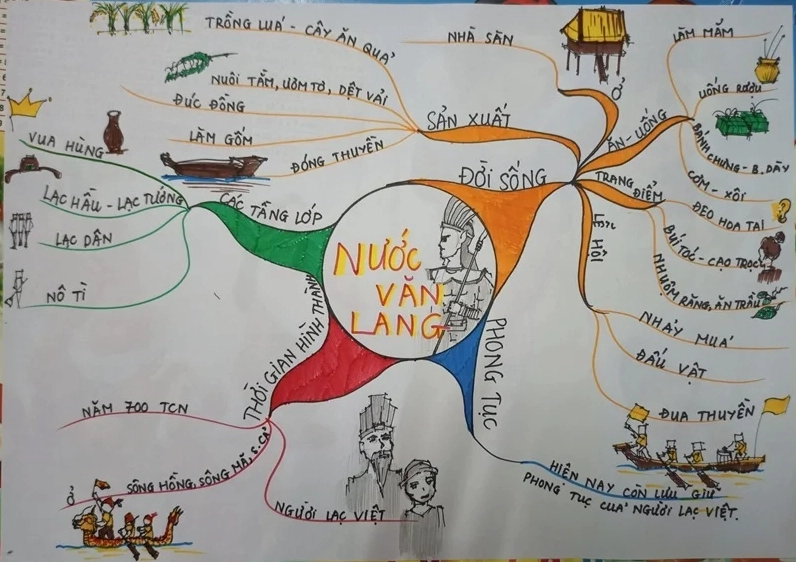 NƯỚC
VĂN
LANG
ĐỜI SỐNG
SẢN XUẤT
TRỒNG LUÁ - CÂY ĂN QUẢ
NUÔI TẰM, ƯƠM TƠ, DỆT VẢI
ĐÚC ĐỒNG
LÀM GỐM
ĐÓNG THUYỀN
Ở
NHÀ SÀN
ĂN - UỐNG
LÀM MẮM
UỐNG RƯỢU
BÁNH CHƯNG - B. DÀY
CƠM - XÔI
TRANG ĐIỂM
ĐEO HOA TAI
BÚI TÓC - CẠO TRỌC
NHUỘM RĂNG, ĂN TRẦU
LỄ HỘI
NHẢY MUÁ
ĐẤU VẬT
ĐUA THUYỀN
PHONG TỤC
HIỆN NAY CÒN LƯU GIỮ
PHONG TỤC CUẢ NGƯỜI LẠC VIỆT.
THỜI GIAN HÌNH THÀNH
NĂM 700 TCN
Ở SÔNG HỒNG, SÔNG MÃ, S.CẢ
NGƯỜI LẠC VIỆT
CÁC TẦNG LỚP
VUA HÙNG
LẠC HẦU - LẠC TƯỚNG
LẠC DÂN
NÔ TÌ